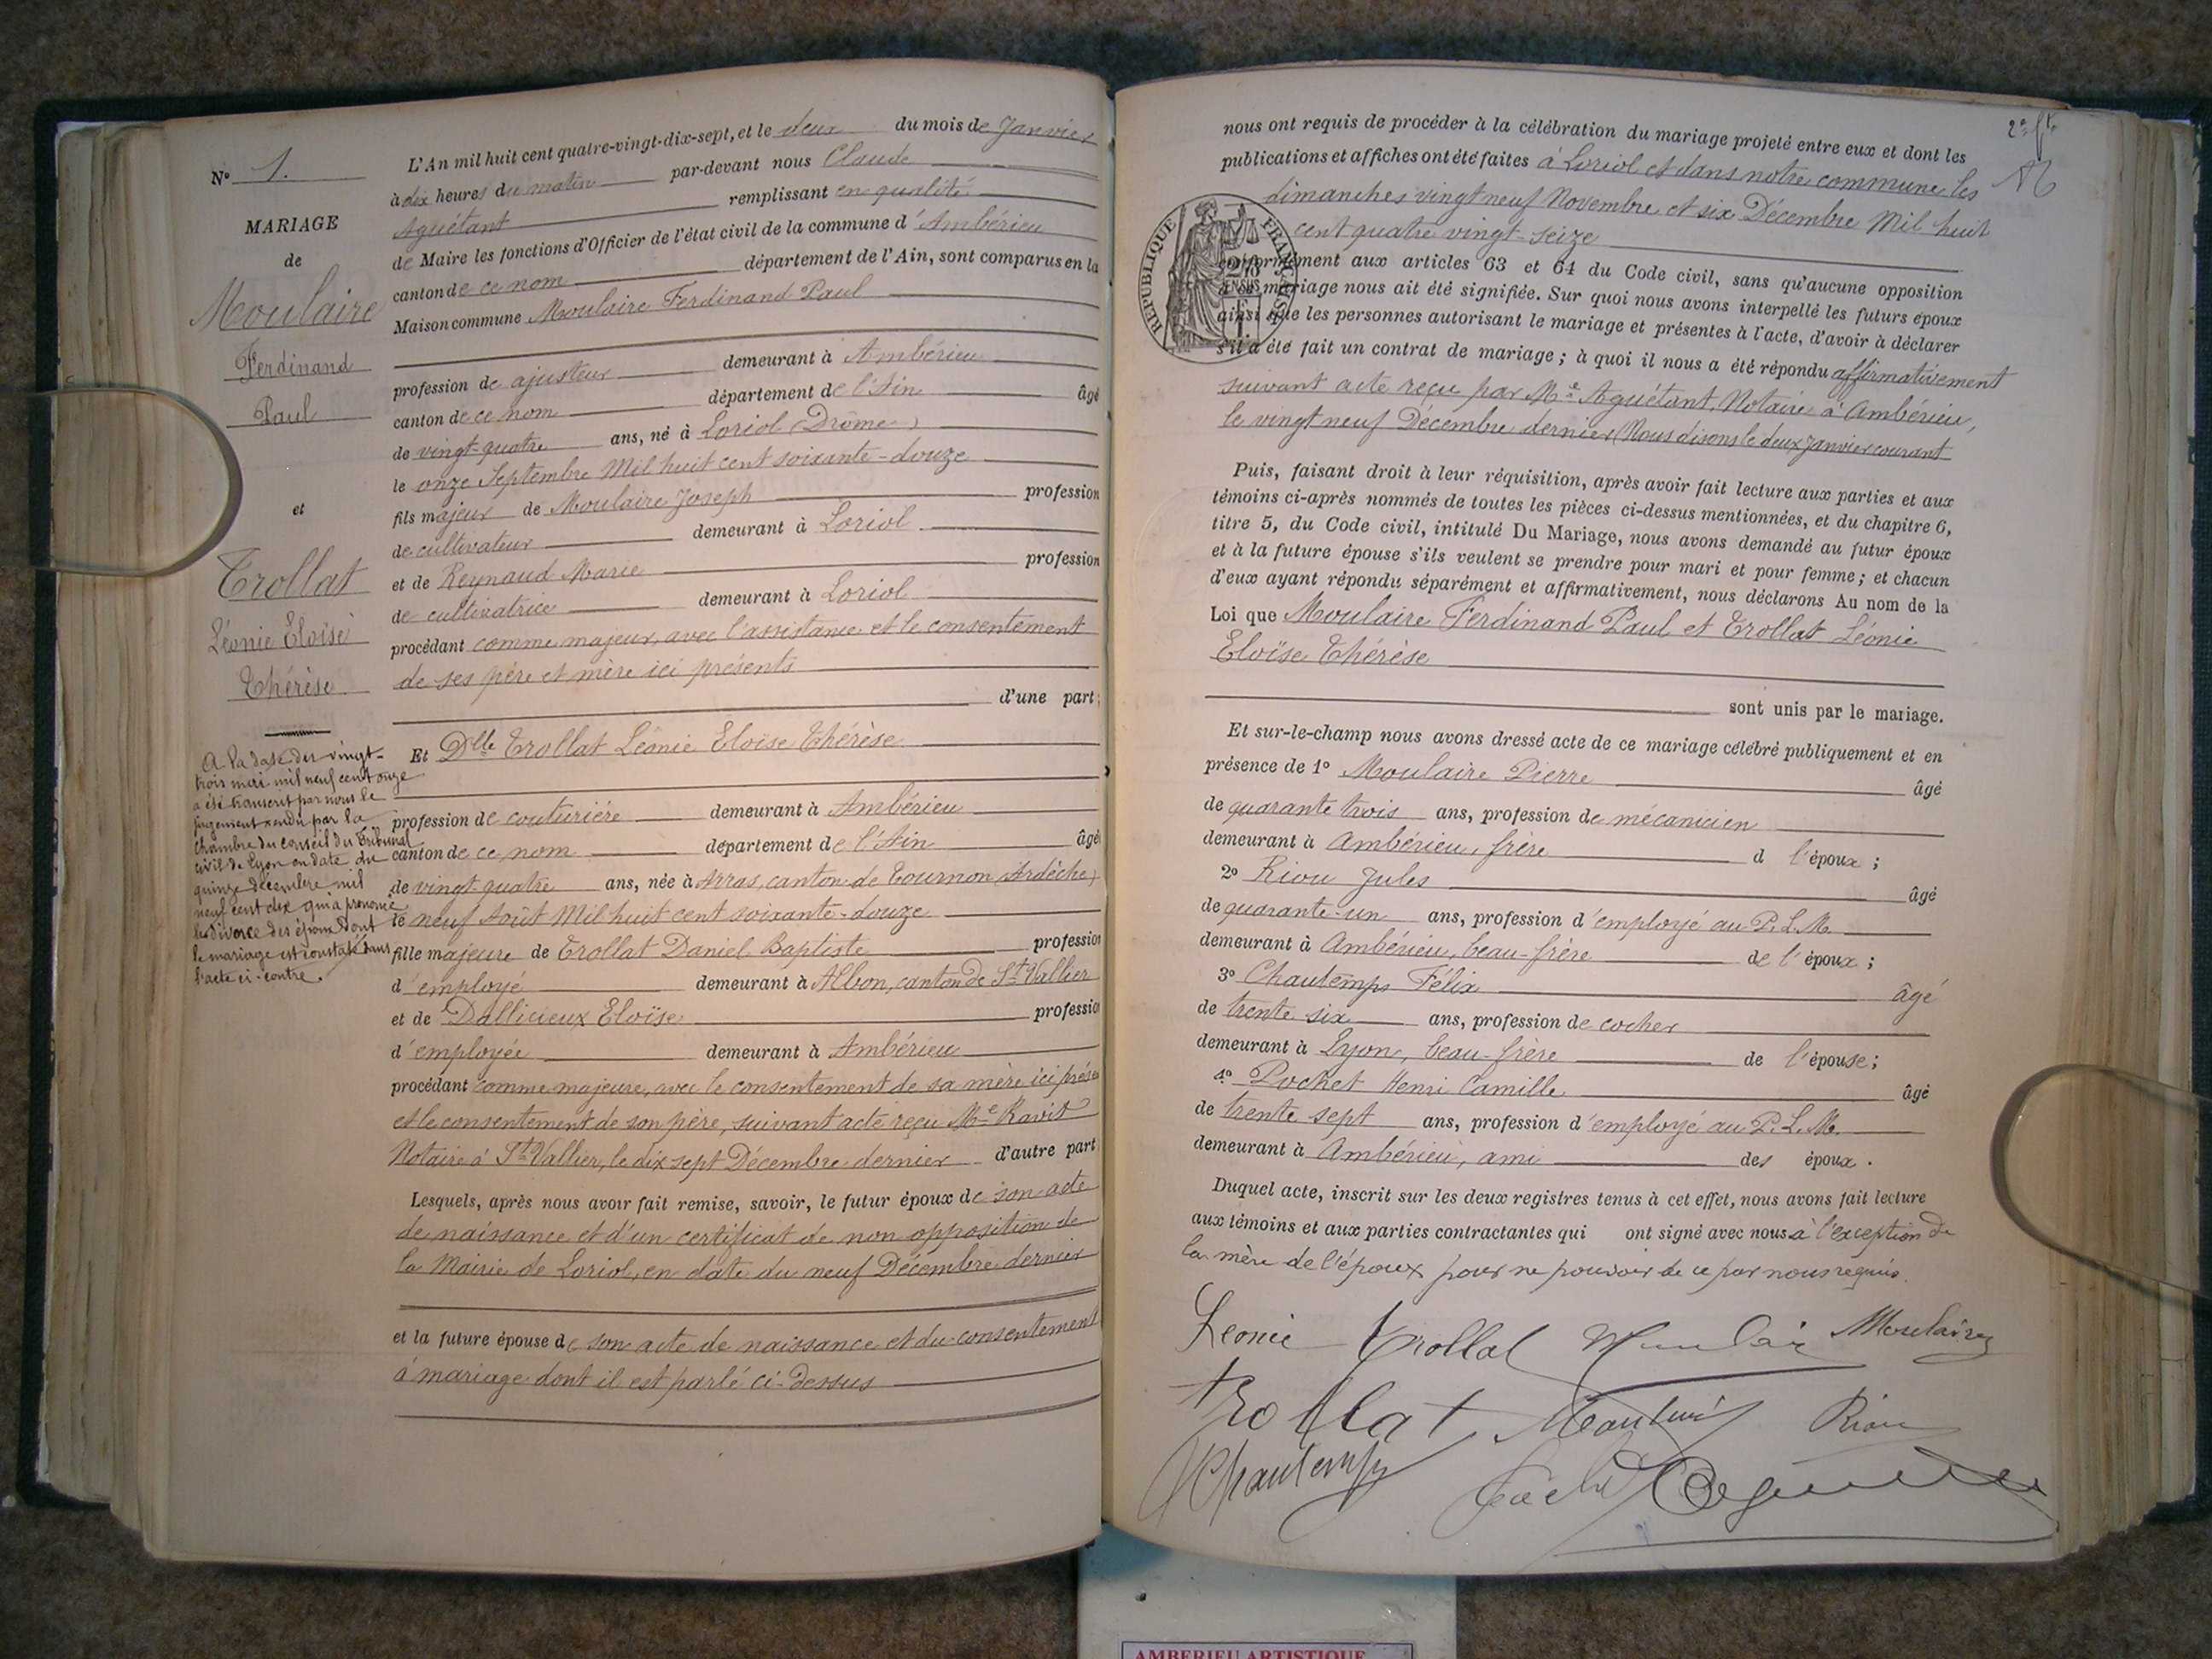 N° 1.
MARIAGE
de
Moulaire
Ferdinand
Paul
et
Trollat
Léonie Eloïse
Thérèse
A la date du vingt-
trois mai mil neuf cent onze
a été transcrit par nous le
jugement rendu par la
chambre du conseil du Tribunal
civil de Lyon en date du
quinze décembre mil
neuf cent dix qui a prononcé
le divorce des époux dont
le mariage est constaté dans
l'acte ci-contre.
L'An mil huit cent quatre-vingt-dix-sept, et le deux du mois de Janvier
à dix heures du matin par-devant nous Claude
Aguétant remplissant en qualité
de Maire les fonctions d'Officier de l'état civil de la commune d'Ambérieu
canton de ce nom département de l'Ain, sont comparus en la
Maison commune Moulaire Ferdinand Paul
profession de ajusteur demeurant à Ambérieu
canton de ce nom département de l'Ain âgé
de vingt-quatre ans, né à Loriol (Drôme)
le onze Septembre Mil huit cent soixante-douze
fils majeur de Moulaire Joseph profession
de cultivateur demeurant à Loriol
et de Reynaud Marie profession
de cultivatrice demeurant à Loriol
procédant comme majeur, avec l'assistance et le consentement
de ses père et mère ici présents
d'une part;
Et Dlle Trollat Léonie Eloïse Thérèse
profession de couturière demeurant à Ambérieu
canton de ce nom département de l'Ain âgée
de vingt quatre ans, née à Arras, canton de Tournon (Ardèche)
le neuf Août Mil huit cent soixante-douze
fille majeure de Trollat Daniel Baptiste profession
d'employé demeurant à Albon, canton de St Vallier
et de Dallicieux Eloïse profession
d'employée demeurant à Ambérieu
procédant comme majeure, avec le consentement de sa mère ici présen
et le consentement de son père, suivant acte reçu Me Ravit
Notaire à St Vallier, le dix sept Décembre dernier d'autre part
Lesquels, après nous avoir fait remise, savoir, le futur époux de son acte
de naissance et d'un certificat de non opposition de
la Mairie de Loriol, en date du neuf Décembre dernier
et la future épouse de son acte de naissance et du consentement
à mariage dont il est parlé ci-dessus
2e ft
nous ont requis de procéder à la célébration du mariage projeté entre eux et dont les
publications et affiches ont été faites à Loriol et dans notre commune les
dimanches vingt neuf Novembre et six Décembre Mil huit
cent quatre vingt-seize
REPUBLIQUE FRANÇAISE
conformément aux articles 63 et 64 du Code civil, sans qu'aucune opposition
à ce mariage nous ait été signifiée. Sur quoi nous avons interpellé les futurs époux
ainsi que les personnes autorisant le mariage et présentes à l'acte, d'avoir à déclarer
s'il a été fait un contrat de mariage; à quoi il nous a été répondu affirmativement
suivant acte reçu par Me Aguétant, Notaire à Ambérieu,
le vingt neuf Décembre dernier (Nous disons le deux Janvier courant
Puis, faisant droit à leur réquisition, après avoir fait lecture aux parties et aux
témoins ci-après nommés de toutes les pièces ci-dessus mentionnées, et du chapitre 6,
titre 5, du Code civil, intitulé Du Mariage, nous avons demandé au futur époux
et à la future épouse s'ils veulent se prendre pour mari et pour femme; et chacun
d'eux ayant répondu séparément et affirmativement, nous déclarons Au nom de la
Loi que Moulaire Ferdinand Paul et Trollat Léonie
Eloïse Thérèse
sont unis par le mariage.
Et sur-le-champ nous avons dressé acte de ce mariage célébré publiquement et en
présence de 1° Moulaire Pierre âgé
de quarante trois ans, profession de mécanicien
demeurant à Ambérieu, frère d l'époux;
2° Riou Jules âgé
de quarante-un ans, profession d'employé au P.L.M.
demeurant à Ambérieu, beau-frère de l'époux;
3° Chautemps Félix âgé
de trente six ans, profession de cocher
demeurant à Lyon, beau-frère de l'épouse;
4° Pochet Henri Camille âgé
de trente sept ans, profession d'employé au P.L.M.
demeurant à Ambérieu, ami des époux.
Duquel acte, inscrit sur les deux registres tenus à cet effet, nous avons fait lecture
aux témoins et aux parties contractantes qui ont signé avec nous à l'exception de
la mère de l'époux pour ne pouvoir de ce par nous requis.
Leonie Trollat Moulaire
trollat Riou
Chautemps
AMBERIEU ARTISTIQUE